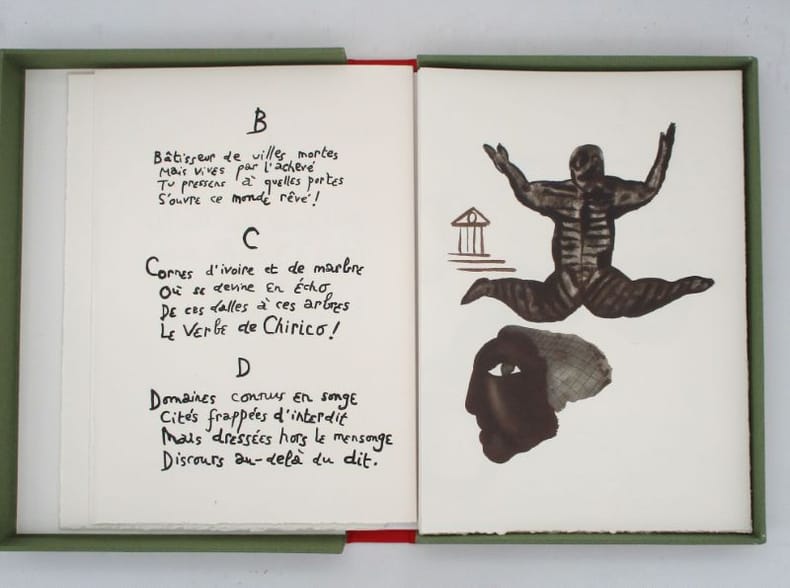 B
Bâtisseur de villes mortes
Mais vives par l'achevé
Tu pressens à quelles portes
S'ouvre ce monde rêvé !
C
Cornes d'ivoire et de marbre
Où se devine en écho
De ces dalles à ces arbres
Le Verbe de Chirico !
D
Domaines connus en songe
Cités frappées d'interdit
Mais dressées hors le mensonge
Discours au-delà du dit.